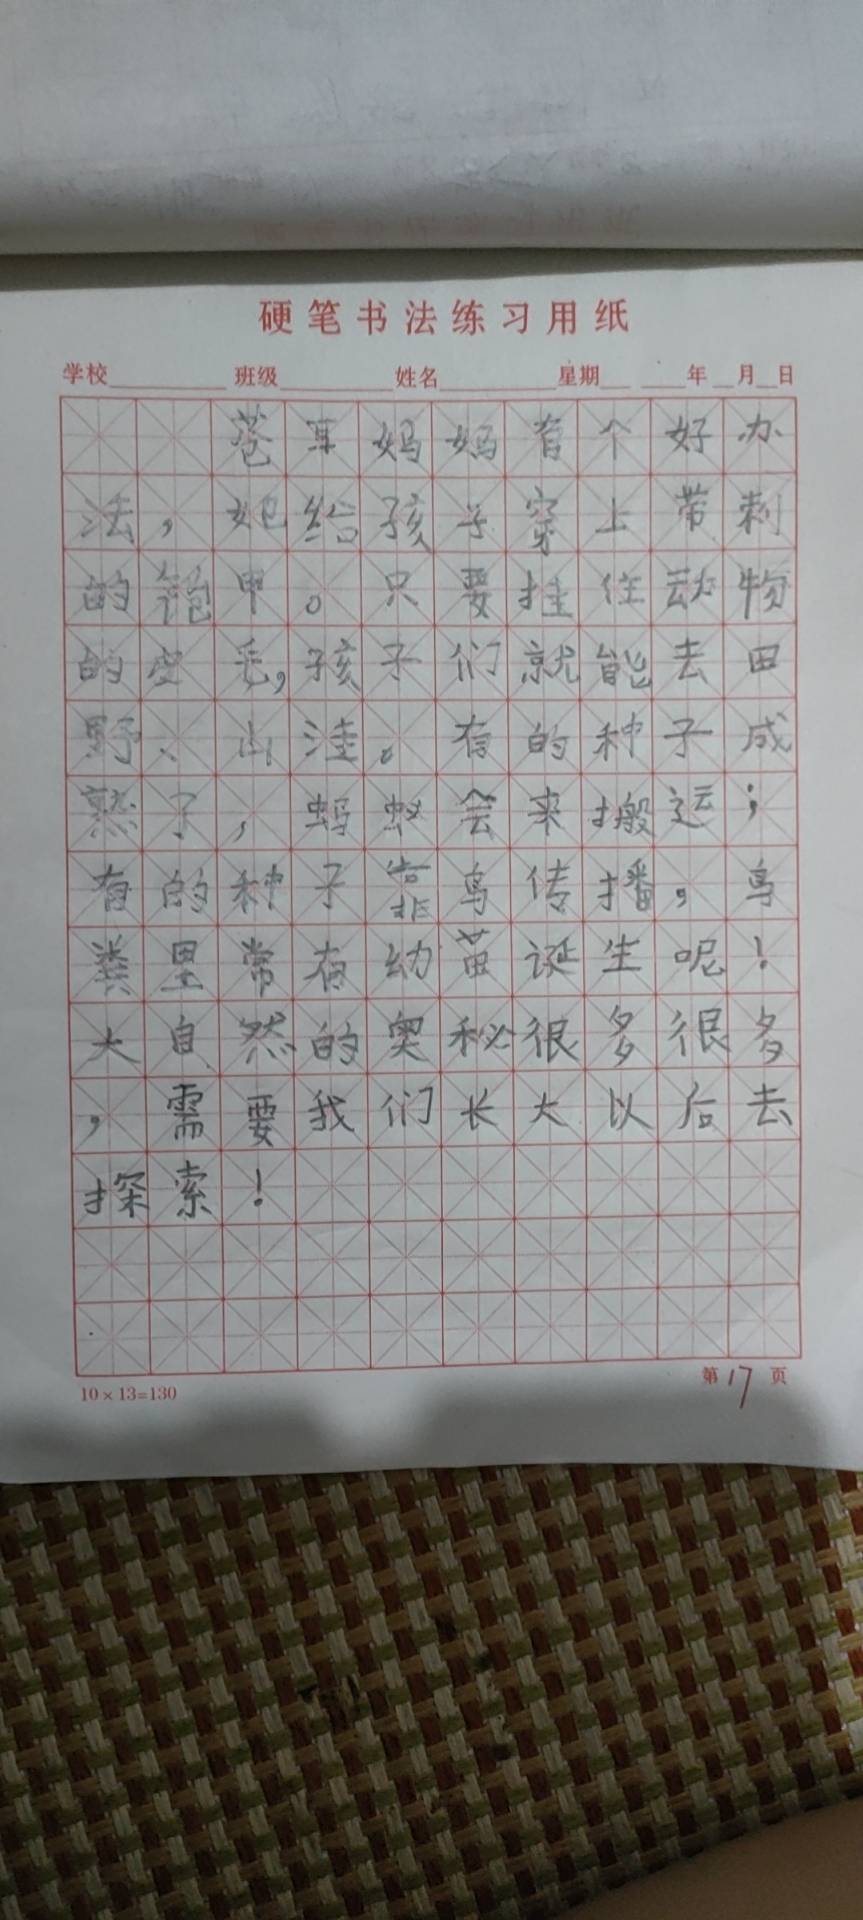 硬笔书法练习用纸
学校 班级 姓名 星期 年 月 日
苍耳妈妈有个好办
法，她给孩子穿上带刺
的铠甲。只要挂住动物
的皮毛，孩子们就能去田
野、山洼。有的种子成
熟了，蚂蚁会来搬运；
有的种子靠鸟传播，鸟
粪里常有幼苗诞生呢！
大自然的奥秘很多很多
，需要我们长大以后去
探索！
10×13=130 第17页